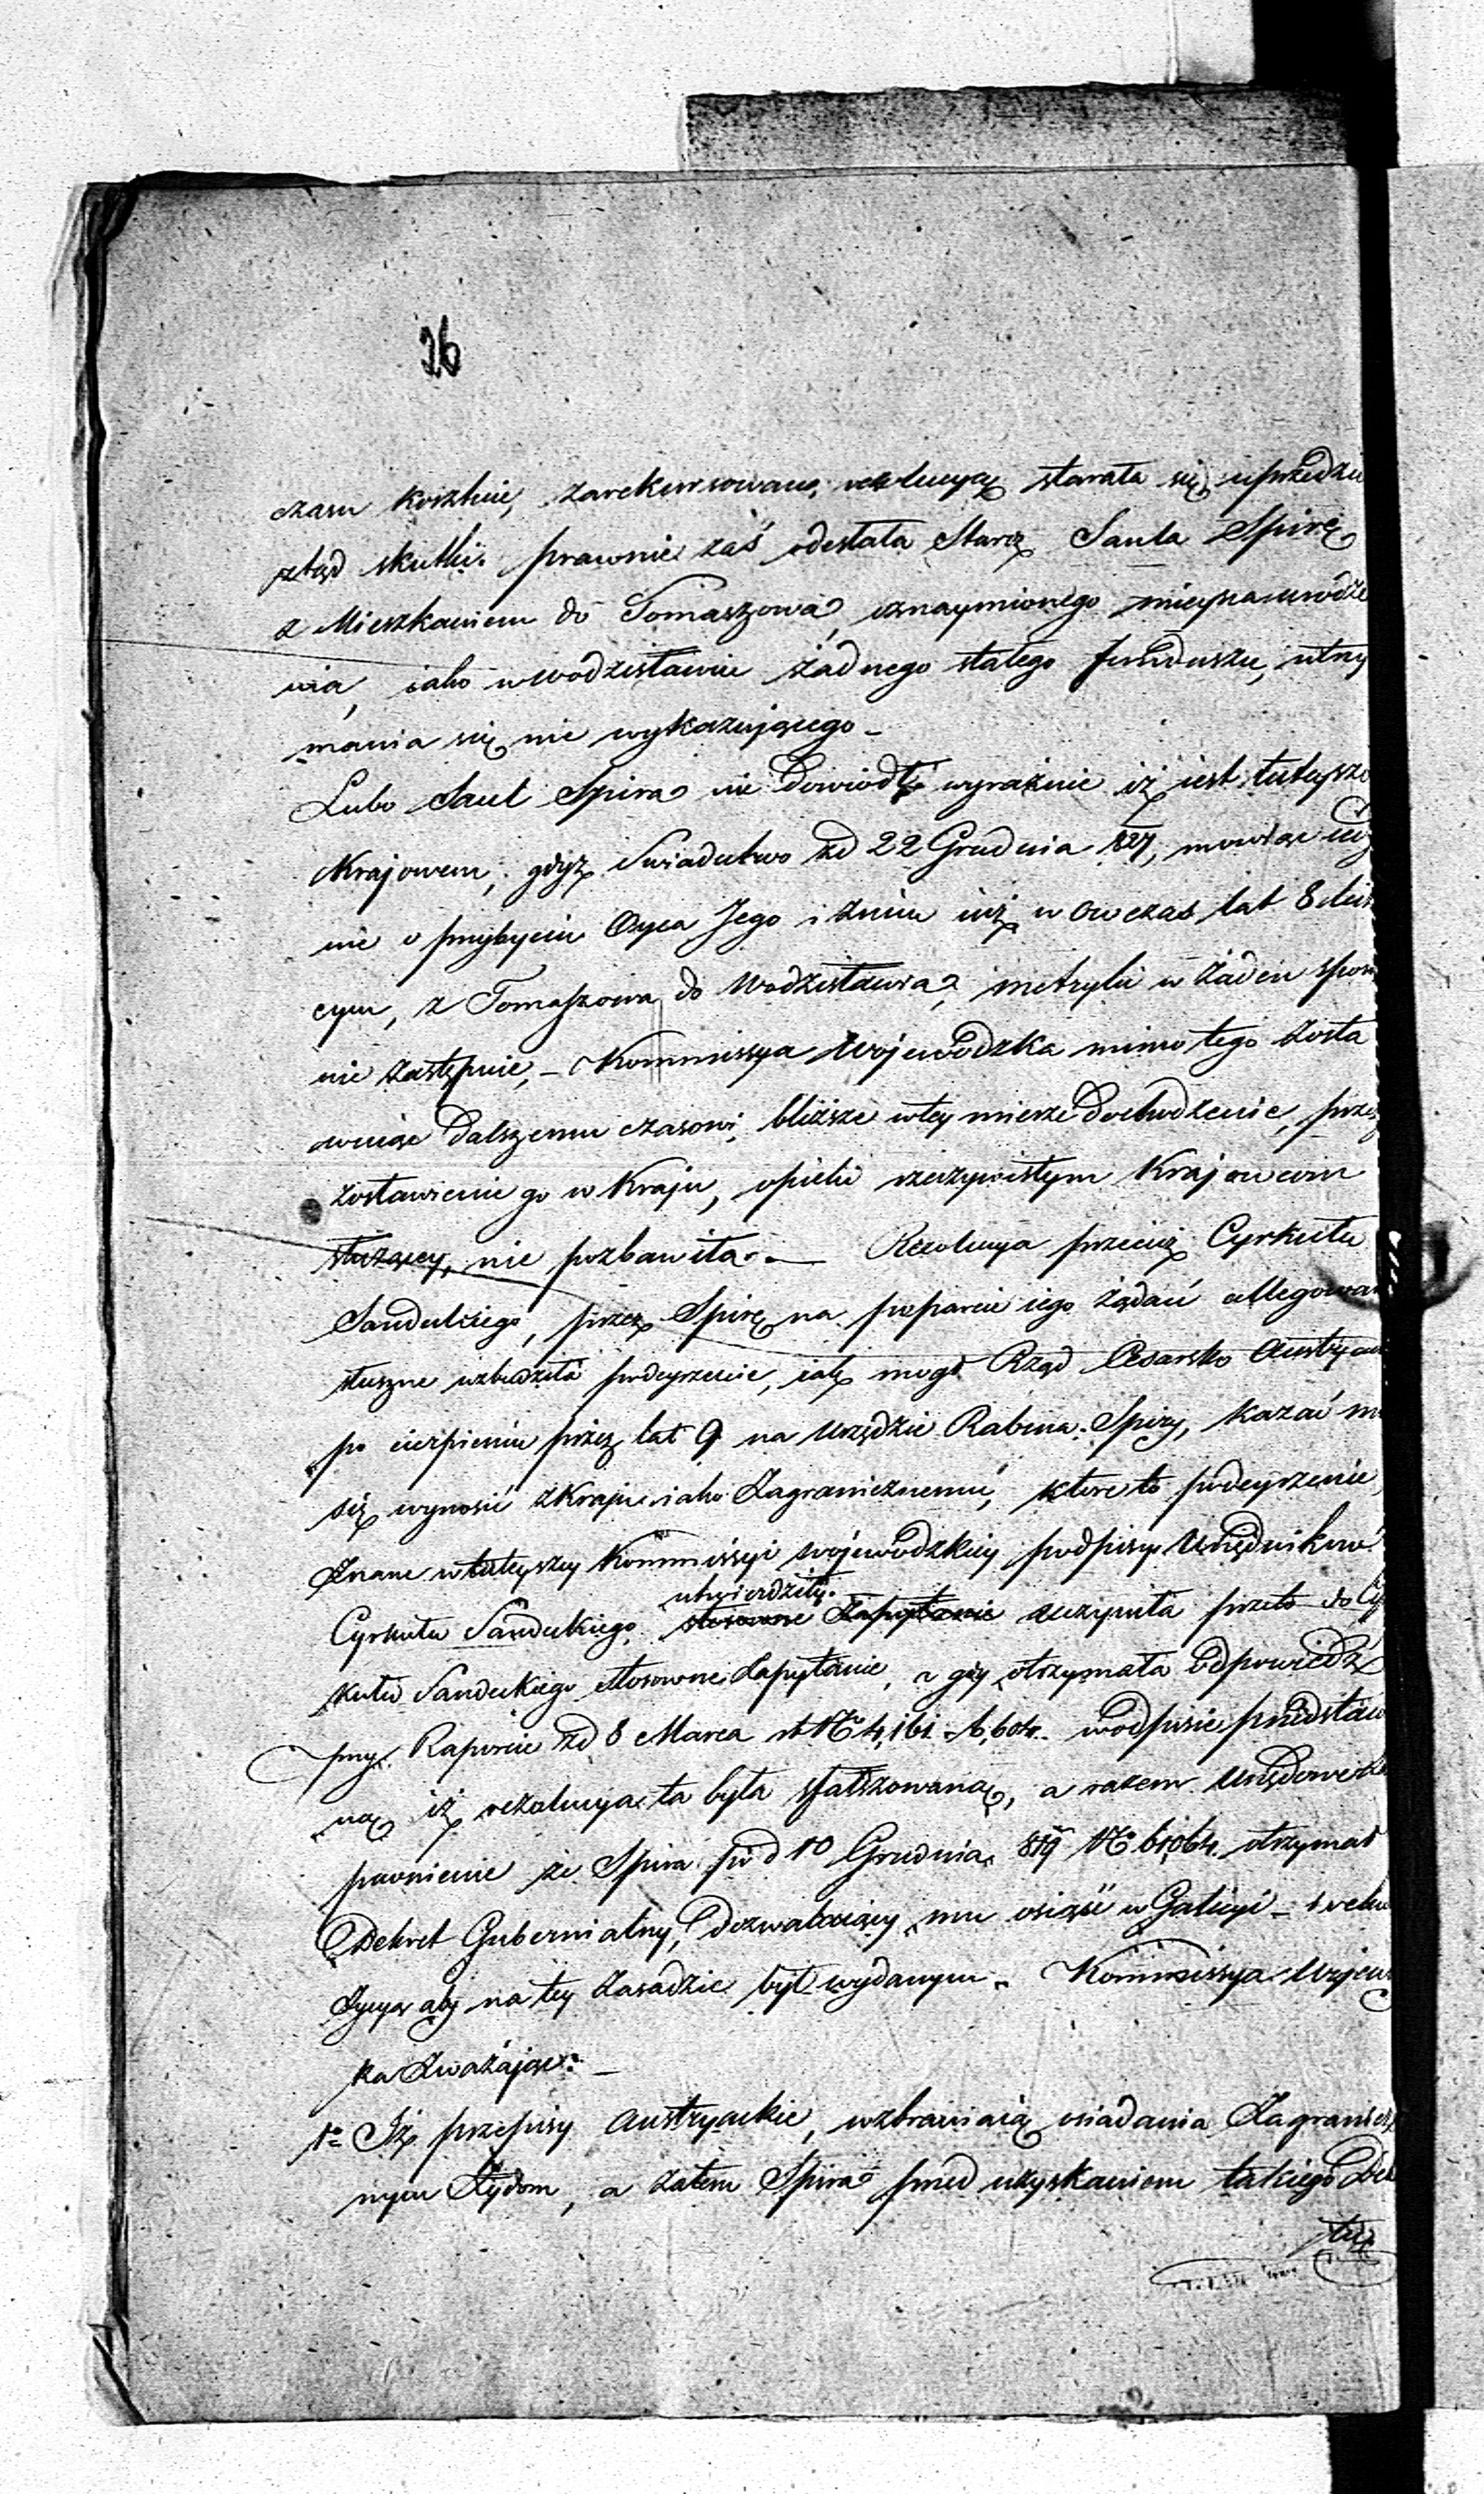 26
czasu koszluie, zarekursowaną rezolucyą starała się uprzedzić
ztąd skutki. prawnie zaś odesłała Starą Saula Spirę
z Mieszkaniem do Tomaszowa uznaymionego mieysca urodze
nia, iako w Wodzisławiu żadnego stałego funduszu, utrzy
mania się nie wykazującego –
Lubo Saul Spira nie dowiódł wyraźnie iż iest tuteysz
Krajowem, gdyż Swiadectwo zd 22 Grudnia 827, mowiąc iedy
nie o przybyciu Oyca Jego i z nim iuż w ow czas lat 8 licz
cym, z Tomaszowa do Wodzisławia, metryki w żaden sposo
nie zastępuie, – Kommissya Wojewodzka mimo tego zosta
wuiąc dalszemu czasowi, bliższe w tey mierze dochodzenie, przez
zostawienie go w Kraju, opieki rzeczywistym Krajowcom
służącey, nie pozbawiła. – Rezolucya przecież Cyrkułu
Sandeckiego, przez Spirę na poparcie iego żądań allegowan
słuszne wzbudziła podeyrzenie, iak mogł Rząd Cesarsko Austryac
po cierpieniu przez lat 9 na Urzędzie Rabina Spiry, kazać mu
się wynosić z Kraju iako Zagranicznemu, które to podeyrzenie
Znane w tuteyszey Kommissyi wojewodzkiey podpisy Urzędników
utwierdziły.
Cyrkułu Sandeckiego, stosowne Zapytanie uczyniła przeto do Cyr
kułu Sandeckiego stosowne Zapytanie, a gdy otrzymała odpowiedź
przy Raporcie zd 8 Marca rb No 4,161 – 6,604. w odpisie przedstawio
ną iż rezolucya ta była sfałszowaną, a razem Urzędowe za
pewnienie że Spira pod 10 Grudnia 819 No 61064 otrzymał
Dekret Gubernialny, dozwalaiący mu osiąść w Galicyi –
żyiąc aby na tey zasadzie był wydanym. Kommissya Wojewódz
ka Zważając: –
1o Iż przepisy Austryackie, wzbraniaią osiadania Zagranicz
nym Żydom, a zatem Spira przed uzyskaniem takiego Dek
tu